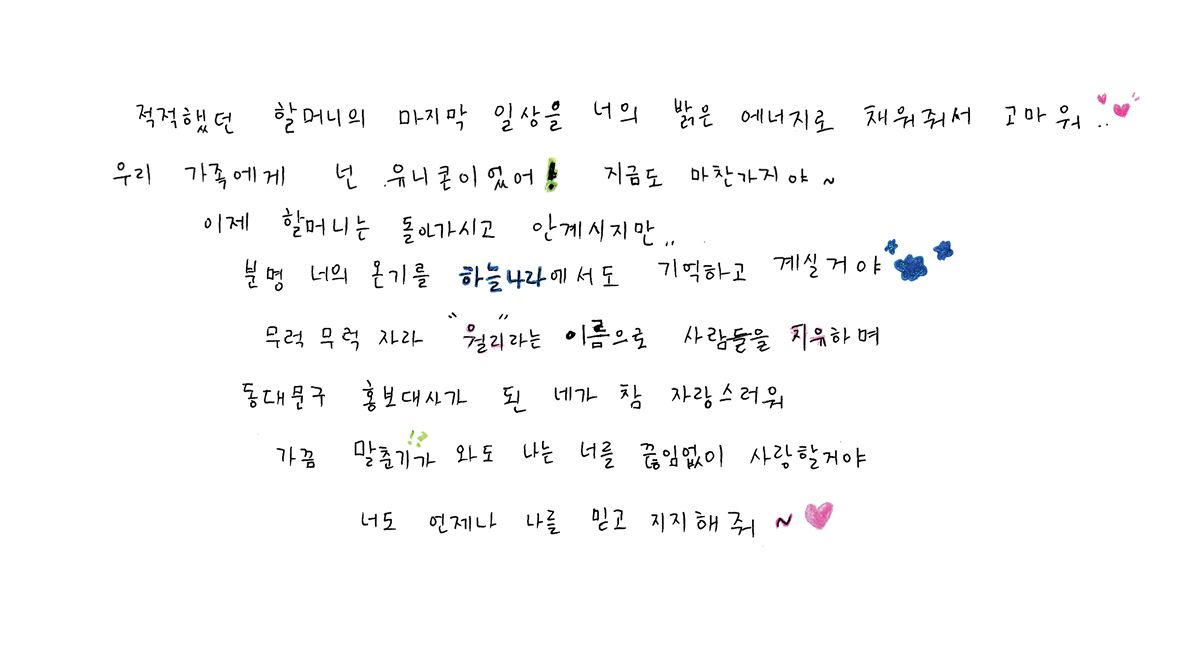 적적했던 할머니의 마지막 일상을 너의 밝은 에너지로 채워줘서 고마워..
우리 가족에게 넌 유니콘이었어! 지금도 마찬가지야~
이제 할머니는 돌아가시고 안계시지만..
분명 너의 온기를 하늘나라에서도 기억하고 계실거야
무럭 무럭 자라 "월리"라는 이름으로 사람들을 치유하며
동대문구 홍보대사가 된 네가 참 자랑스러워
가끔 말춘기가!? 와도 나는 너를 끊임없이 사랑할거야
너도 언제나 나를 믿고 지지해줘~